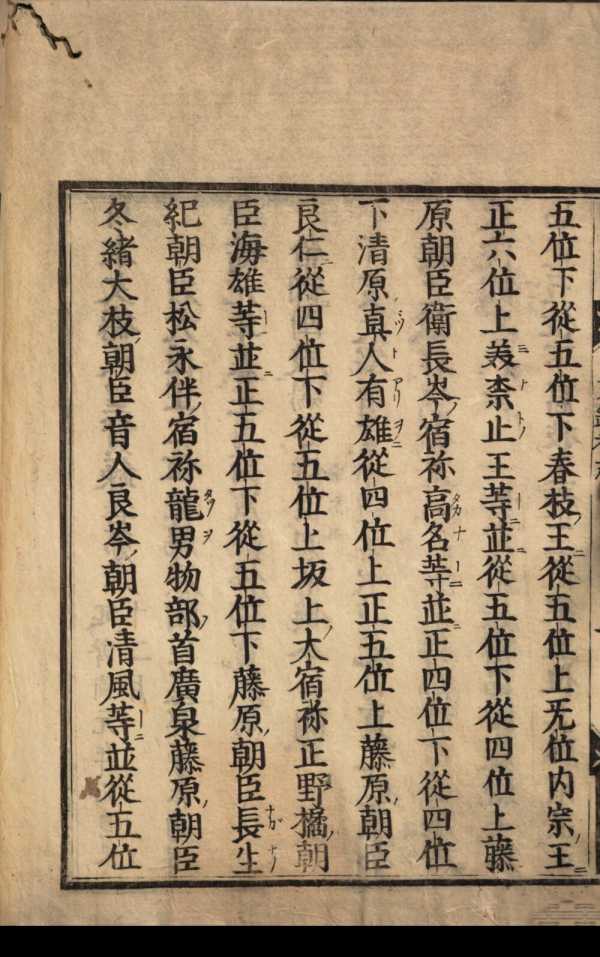 五位下從五位下春枝王從五位上无位内宗王
正六位上美柰止王等並從五位下從四位上藤
原朝臣衛長岑宿祢高名等並正四位下從四位
下清原真人有雄從四位上正五位上藤原朝臣
良仁從四位下從五位上坂上大宿祢正野橘朝
臣海雄等並正五位下從五位下藤原朝臣長生
紀朝臣松永伴宿祢龍男物部首廣泉藤原朝臣
冬緒大枝朝臣音人良岑朝臣清風等並從五位